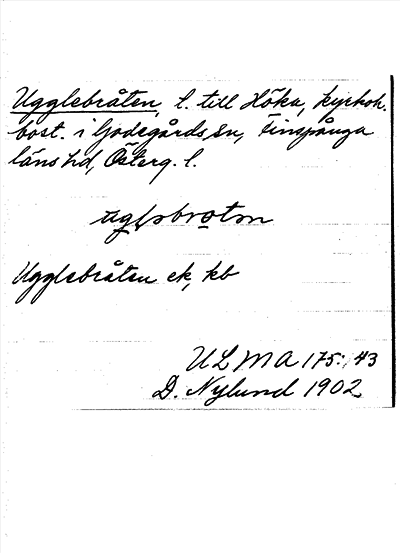 Ugglebråten, l. till Höka, kyrkoh.
bost. i Godegårds sn, Finspånga
läns hd, Österg. l.
Ugglebråten ek, kb
ULMA 175:43
D. Nylund 1902